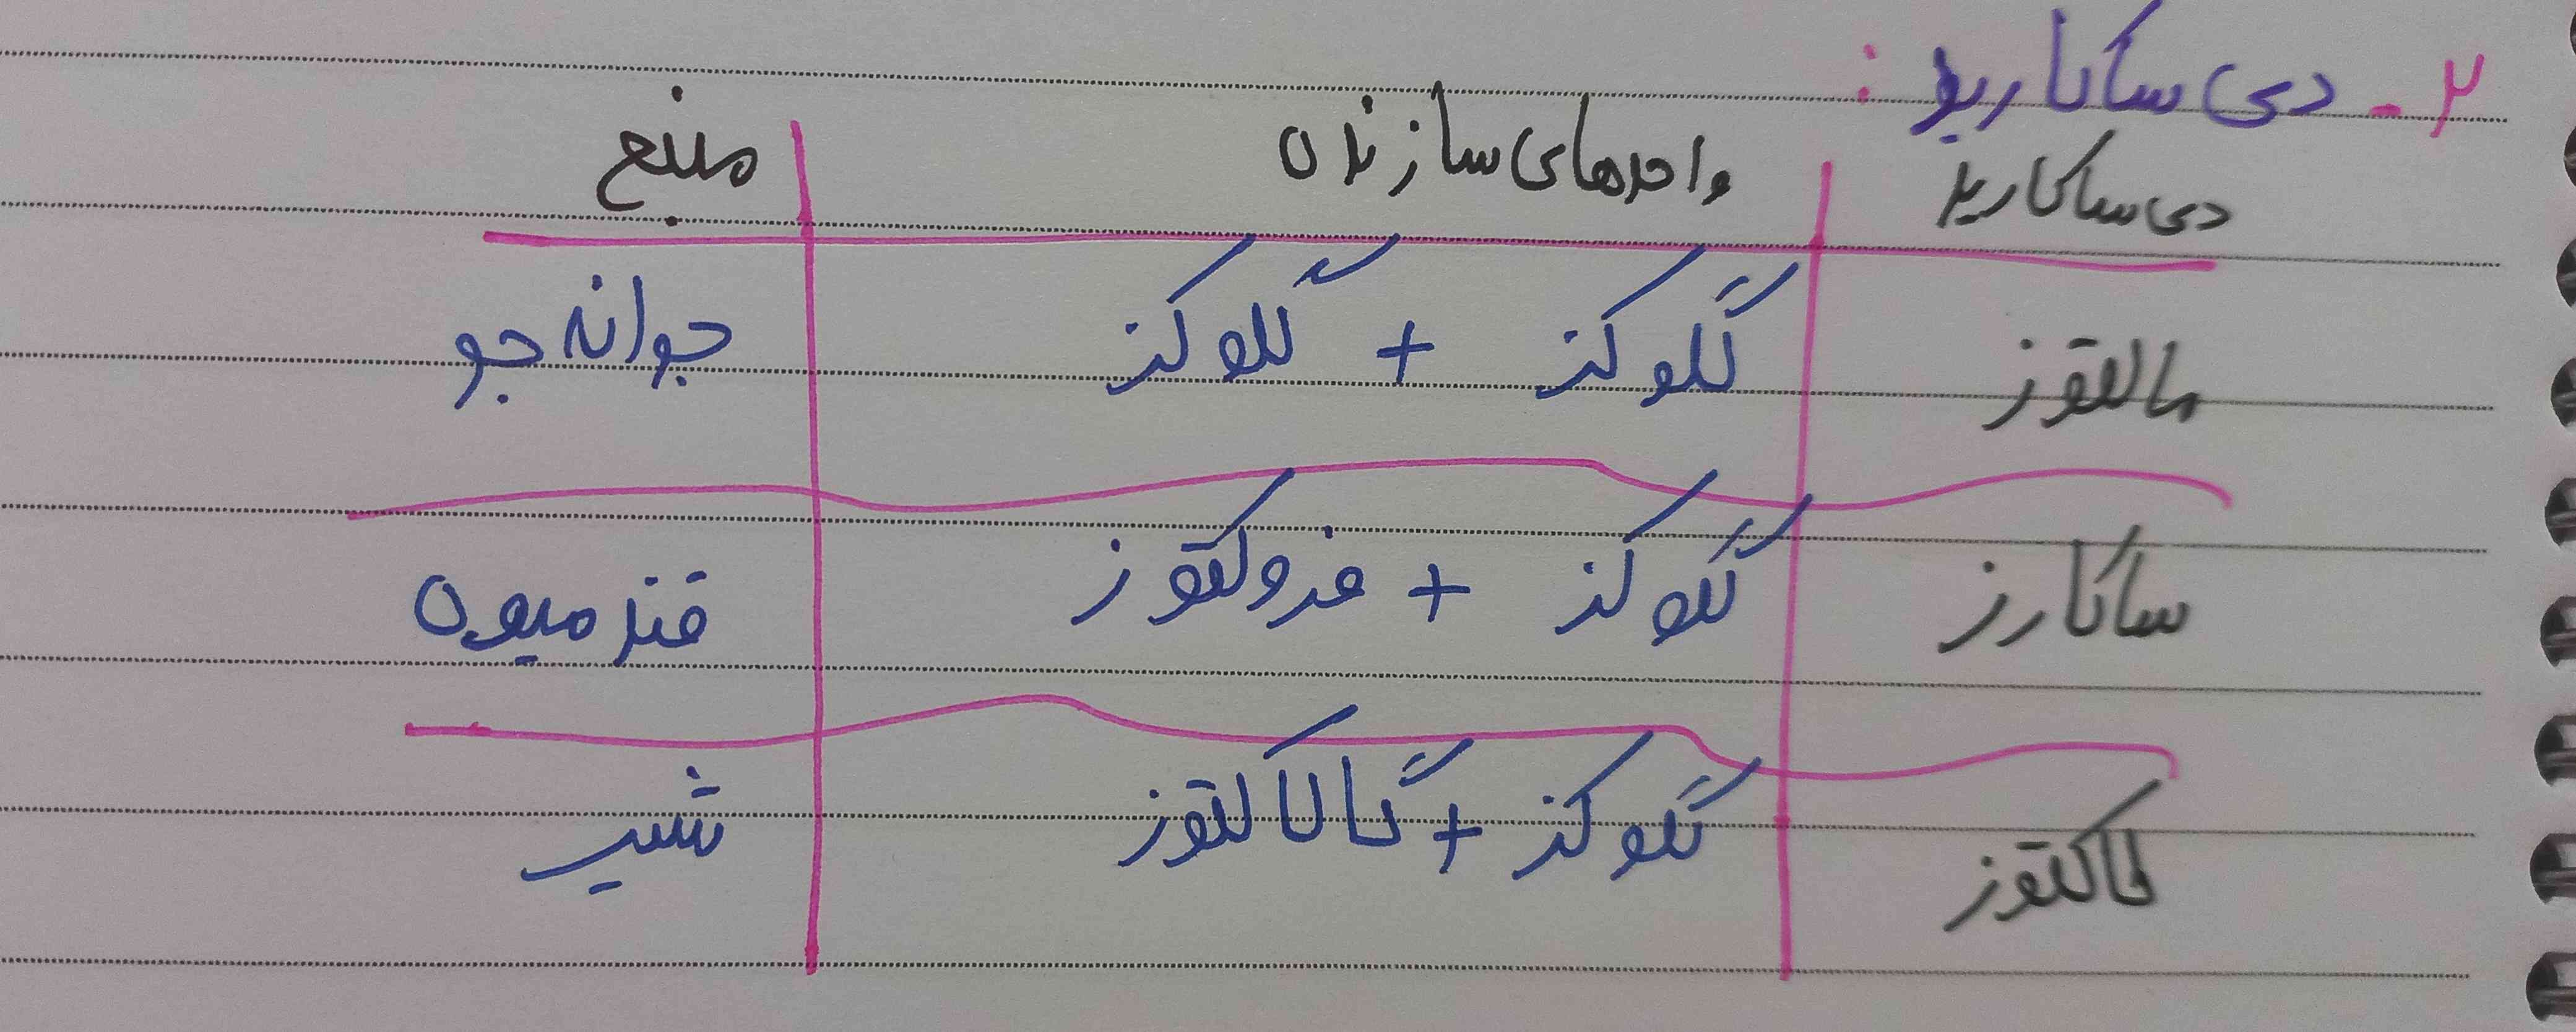 ۲- دی ساکارید :
دی ساکارید واحدهای سازنده منبع
مالتوز گلوکز + گلوکز جوانه جو
ساکارز گلوکز + فروکتوز قند میوه
لاکتوز گلوکز + گالاکتوز شیر